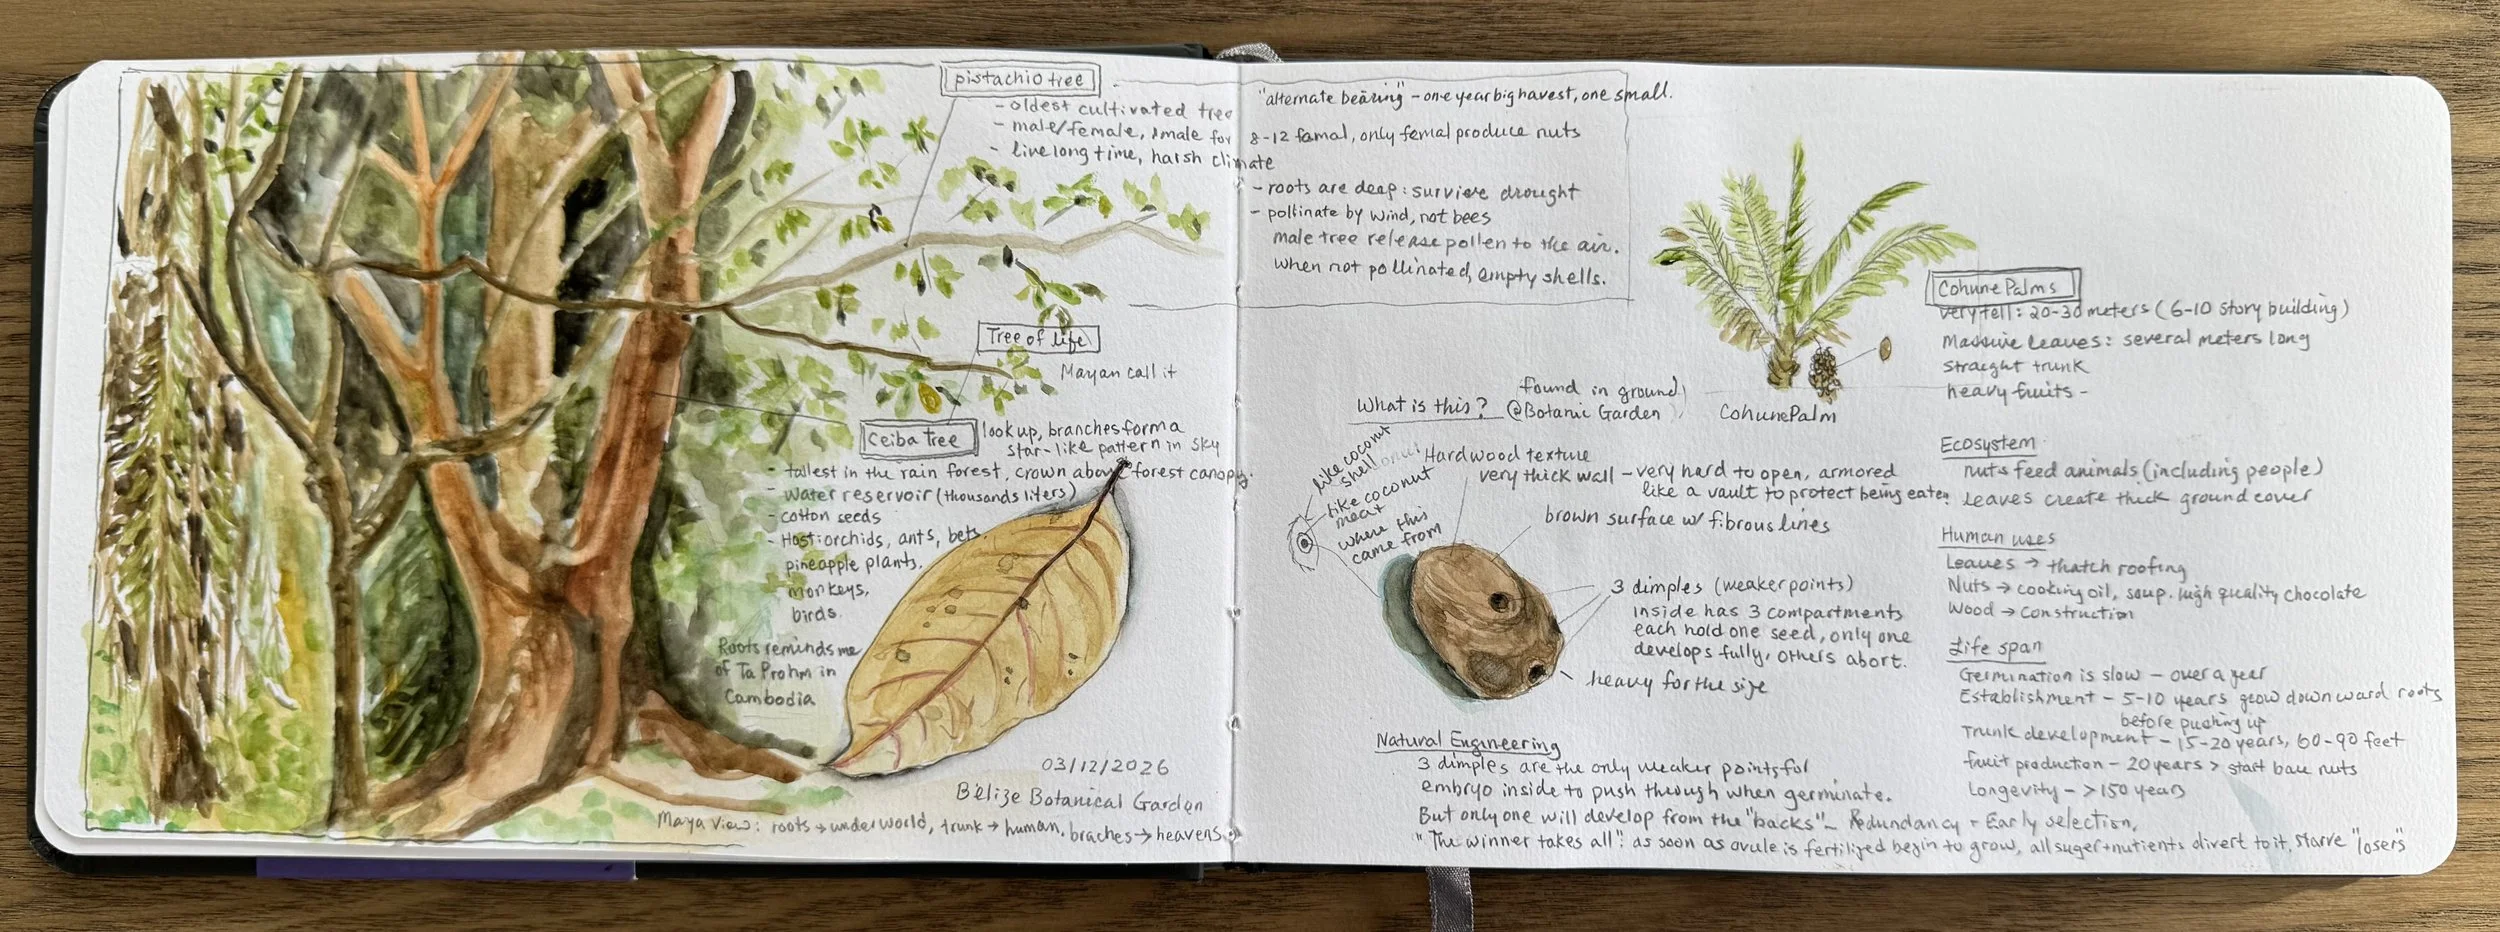 pistachio tree
- oldest cultivated tree
- male/female, 1male for 8-12 famal, only femal produce nuts
- live long time, harsh climate
"alternate bearing" - one year big havest, one small.
- roots are deep: survive drought
- pollinate by wind, not bees
male tree release pollen to the air.
when not pollinated, empty shells.
Tree of life
Mayan call it
Ceiba tree
look up, branches form a
star-like pattern in sky
- tallest in the rain forest, crown above forest canopy.
- water reservoir (thousands liters)
- cotton seeds
- Host: orchids, ants, bets,
pineapple plants,
monkeys,
birds.
Roots reminds me
of Ta Prohm in
Cambodia
03/12/2026
Belize Botanical Garden
Maya view: roots → underworld, trunk → human, braches → heavens
What is this?
found in ground
@Botanic Garden
like coconut
shell
like coconut
meat
where this
came from
Hardwood texture
very thick wall - very hard to open, armored
like a vault to protect being eaten
brown surface w/ fibrous lines
3 dimples (weaker points)
inside has 3 compartments
each hold one seed, only one
develops fully, others abort.
heavy for the size
Natural Engineering
3 dimples are the only weaker points for
embryo inside to push through when germinate.
But only one will develop from the "backs" - Redundancy + Early selection,
"The winner takes all": as soon as ovule is fertilized begin to grow, all suger+nutients divert to it, starve "losers"
CohunePalm
Cohune Palms
very tell: 20-30 meters (6-10 story building)
Massive leaves: several meters long
straight trunk
heavy fruits -
Ecosystem
nuts feed animals (including people)
leaves create thick ground cover
Human uses
Leaves → thatch roofing
Nuts → cooking oil, soup. high quality chocolate
Wood → construction
Life span
Germination is slow - over a year
Establishment - 5-10 years grow downward roots
before pushing up
Trunk development - 15-20 years, 60-90 feet
fruit production - 20 years > start bare nuts
Longevity - >150 years